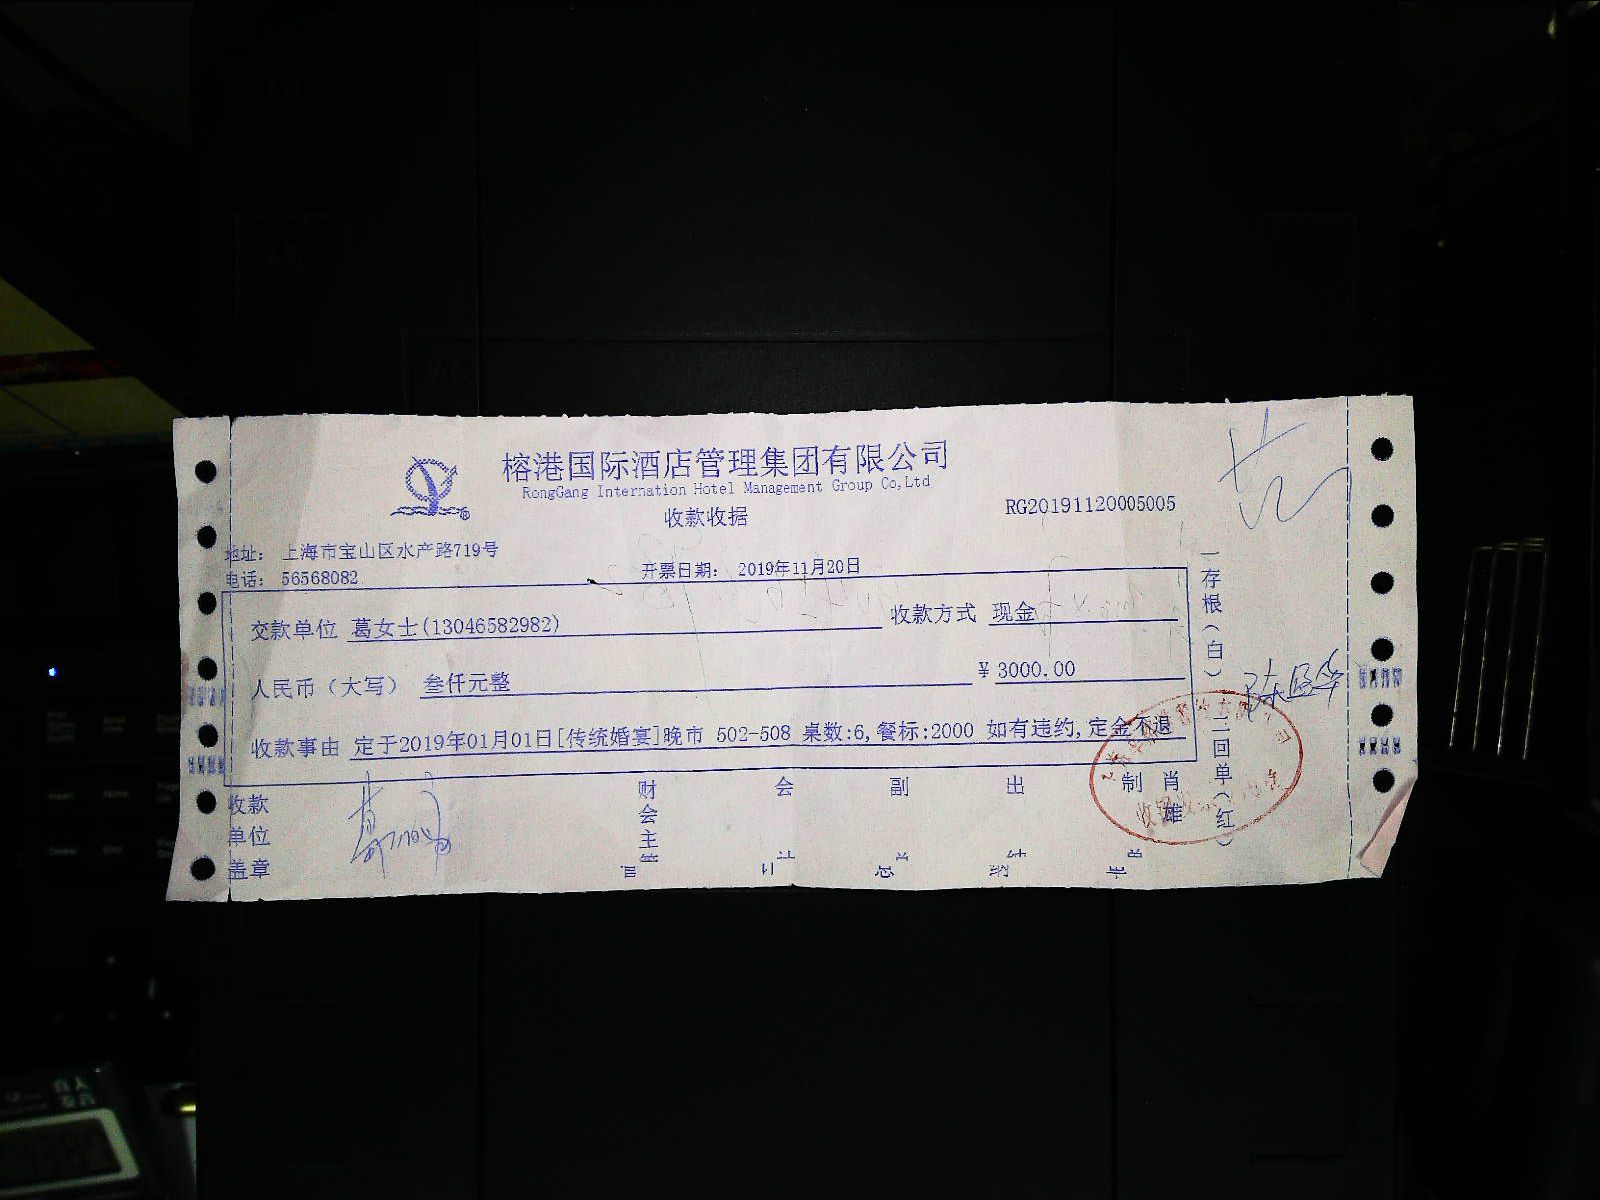 榕港国际酒店管理集团有限公司
RongGang Internation Hotel Management Group Co,Ltd
收款收据
RG20191120005005
地址： 上海市宝山区水产路719号
电话： 56568082
开票日期： 2019年11月20日
交款单位 葛女士(13046582982)
收款方式 现金
人民币（大写） 叁仟元整
￥3000.00
收款事由 定于2019年01月01日[传统婚宴]晚市 502-508 桌数:6,餐标:2000 如有违约,定金不退
一存根（白）
二回单（红）
收款单位盖章
财会主管
会计
副总
出纳
制单
肖雄